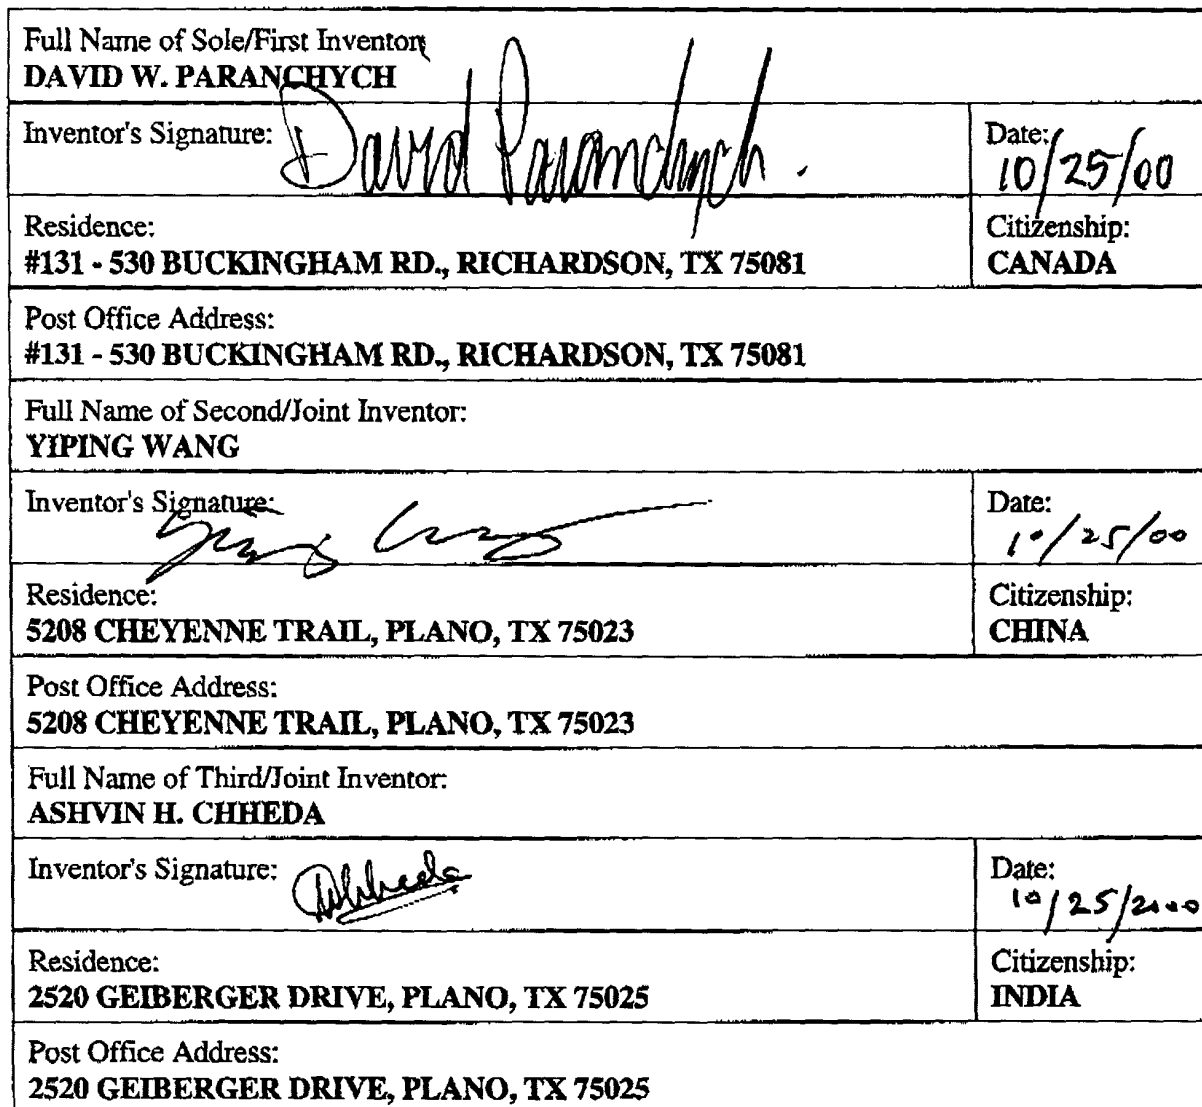 Full Name of Sole/First Inventor:
DAVID W. PARANCHYCH
Inventor's Signature: David Paranchych.
Date:
10/25/00
Residence:
#131 - 530 BUCKINGHAM RD., RICHARDSON, TX 75081
Citizenship:
CANADA
Post Office Address:
#131 - 530 BUCKINGHAM RD., RICHARDSON, TX 75081
Full Name of Second/Joint Inventor:
YIPING WANG
Inventor's Signature: Yiping Wang
Date:
10/25/00
Residence:
5208 CHEYENNE TRAIL, PLANO, TX 75023
Citizenship:
CHINA
Post Office Address:
5208 CHEYENNE TRAIL, PLANO, TX 75023
Full Name of Third/Joint Inventor:
ASHVIN H. CHHEDA
Inventor's Signature: AChheda
Date:
10/25/2000
Residence:
2520 GEIBERGER DRIVE, PLANO, TX 75025
Citizenship:
INDIA
Post Office Address:
2520 GEIBERGER DRIVE, PLANO, TX 75025